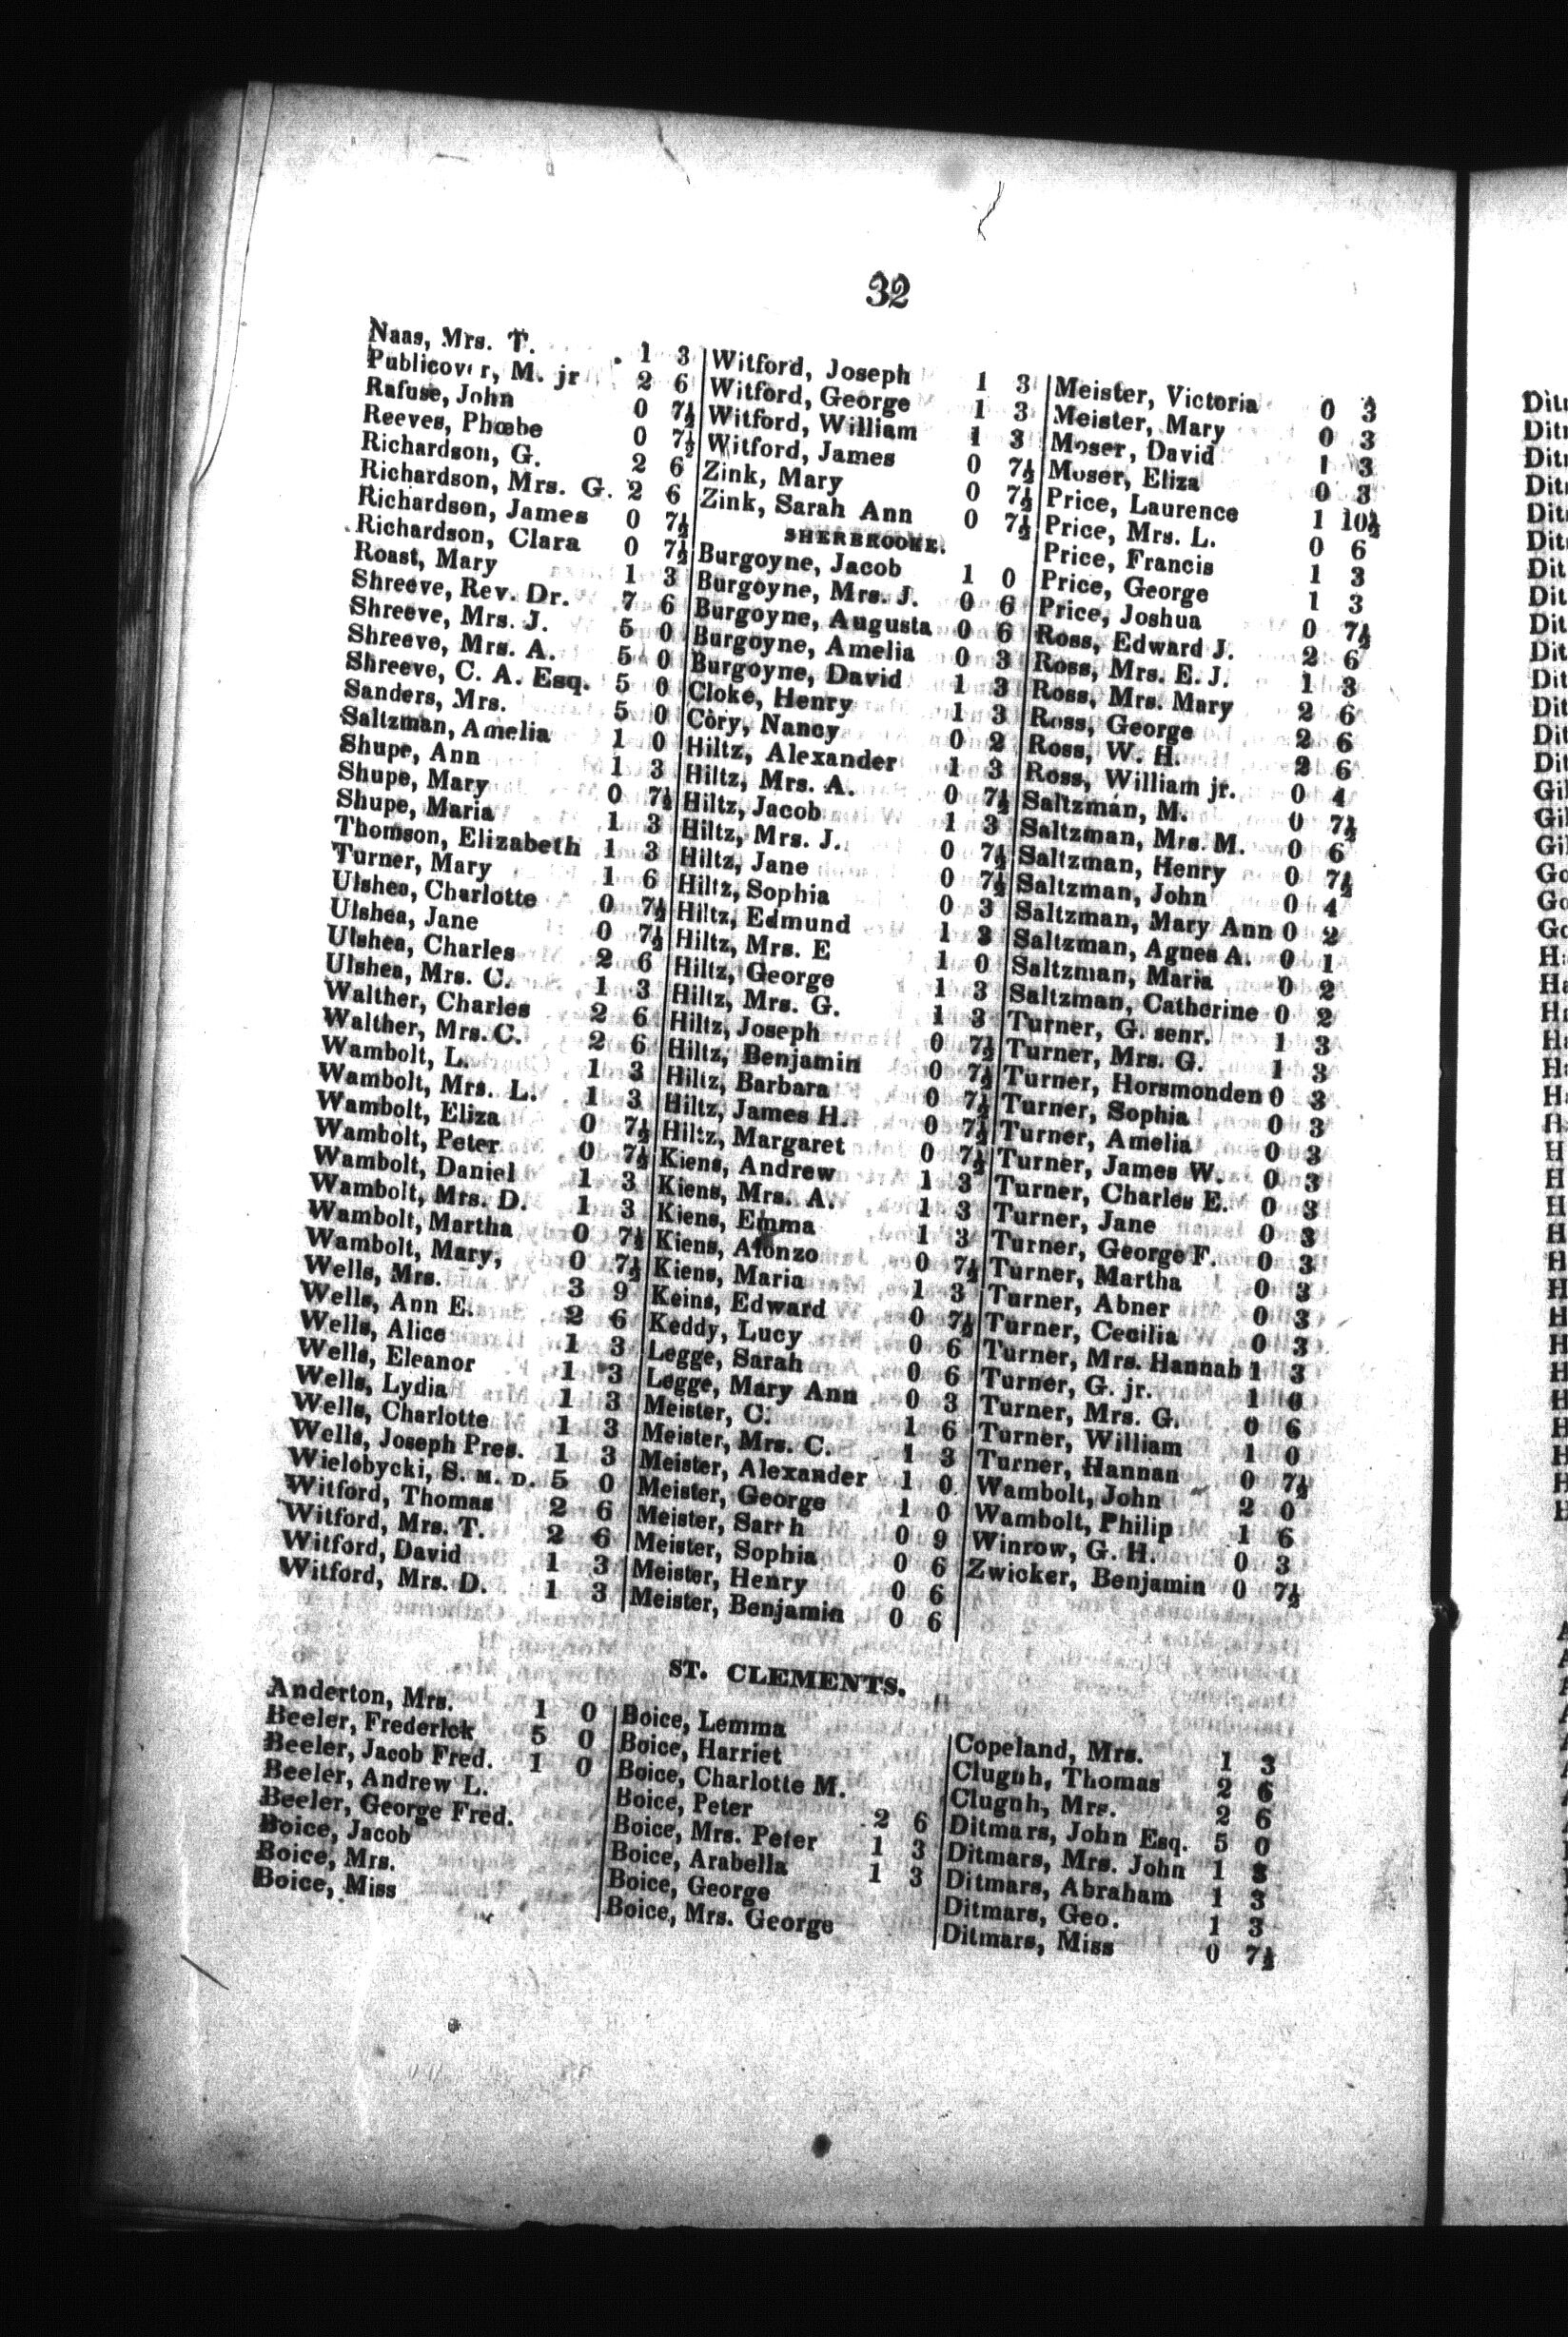 32
Naas, Mrs. T. 1 3
Publicover, M. jr 2 6
Rafuse, John 0 7½
Reeves, Phœbe 0 7½
Richardson, G. 2 6
Richardson, Mrs. G. 2 6
Richardson, James 0 7½
Richardson, Clara 0 7½
Roast, Mary 1 3
Shreeve, Rev. Dr. 7 6
Shreeve, Mrs. J. 5 0
Shreeve, Mrs. A. 5 0
Shreeve, C. A. Esq. 5 0
Sanders, Mrs. 5 0
Saltzman, Amelia 1 0
Shupe, Ann 1 3
Shupe, Mary 0 7½
Shupe, Maria 1 3
Thomson, Elizabeth 1 3
Turner, Mary 1 6
Ulshea, Charlotte 0 7½
Ulshea, Jane 0 7½
Ulshea, Charles 2 6
Ulshea, Mrs. C. 1 3
Walther, Charles 2 6
Walther, Mrs. C. 2 6
Wambolt, L. 1 3
Wambolt, Mrs. L. 1 3
Wambolt, Eliza 0 7½
Wambolt, Peter 0 7½
Wambolt, Daniel 1 3
Wambolt, Mrs. D. 1 3
Wambolt, Martha 0 7½
Wambolt, Mary, 0 7½
Wells, Mrs. 3 9
Wells, Ann E. 2 6
Wells, Alice 1 3
Wells, Eleanor 1 3
Wells, Lydia 1 3
Wells, Charlotte 1 3
Wells, Joseph Pres. 1 3
Wielobycki, S. M. D. 5 0
Witford, Thomas 2 6
Witford, Mrs. T. 2 6
Witford, David 1 3
Witford, Mrs. D. 1 3
Witford, Joseph 1 3
Witford, George 1 3
Witford, William 1 3
Witford, James 0 7½
Zink, Mary 0 7½
Zink, Sarah Ann 0 7½
SHERBROOKE.
Burgoyne, Jacob 1 0
Burgoyne, Mrs. J. 0 6
Burgoyne, Augusta 0 6
Burgoyne, Amelia 0 3
Burgoyne, David 1 3
Cloke, Henry 1 3
Cory, Nancy 0 2
Hiltz, Alexander 1 3
Hiltz, Mrs. A. 0 7½
Hiltz, Jacob 1 3
Hiltz, Mrs. J. 0 7½
Hiltz, Jane 0 7½
Hiltz, Sophia 0 3
Hiltz, Edmund 1 3
Hiltz, Mrs. E 1 0
Hiltz, George 1 3
Hiltz, Mrs. G. 1 3
Hiltz, Joseph 0 7½
Hiltz, Benjamin 0 7½
Hiltz, Barbara 0 7½
Hiltz, James H. 0 7½
Hiltz, Margaret 0 7½
Kiens, Andrew 1 3
Kiens, Mrs. A. 1 3
Kiens, Emma 1 3
Kiens, Alonzo 0 7½
Kiens, Maria 1 3
Keins, Edward 0 7½
Keddy, Lucy 0 6
Legge, Sarah 0 6
Legge, Mary Ann 0 3
Meister, C. 1 6
Meister, Mrs. C. 1 3
Meister, Alexander 1 0
Meister, George 1 0
Meister, Sarah 0 9
Meister, Sophia 0 6
Meister, Henry 0 6
Meister, Benjamin 0 6
Meister, Victoria 0 3
Meister, Mary 0 3
Moser, David 1 3
Moser, Eliza 0 3
Price, Laurence 1 10½
Price, Mrs. L. 0 6
Price, Francis 1 3
Price, George 1 3
Price, Joshua 0 7½
Ross, Edward J. 2 6
Ross, Mrs. E. J. 1 3
Ross, Mrs. Mary 2 6
Ross, George 2 6
Ross, W. H. 2 6
Ross, William jr. 0 4
Saltzman, M. 0 7½
Saltzman, Mrs. M. 0 6
Saltzman, Henry 0 7½
Saltzman, John 0 4
Saltzman, Mary Ann 0 2
Saltzman, Agnes A. 0 1
Saltzman, Maria 0 2
Saltzman, Catherine 0 2
Turner, G. senr. 1 3
Turner, Mrs. G. 1 3
Turner, Horsmonden 0 3
Turner, Sophia 0 3
Turner, Amelia 0 3
Turner, James W. 0 3
Turner, Charles E. 0 3
Turner, Jane 0 3
Turner, George F. 0 3
Turner, Martha 0 3
Turner, Abner 0 3
Turner, Cecilia 0 3
Turner, Mrs. Hannah 1 3
Turner, G. jr. 1 0
Turner, Mrs. G. 0 6
Turner, William 1 0
Turner, Hannan 0 7½
Wambolt, John 2 0
Wambolt, Philip 1 6
Winrow, G. H. 0 3
Zwicker, Benjamin 0 7½
ST. CLEMENTS.
Anderton, Mrs. 1 0
Beeler, Frederick 5 0
Beeler, Jacob Fred. 1 0
Beeler, Andrew L.
Beeler, George Fred.
Boice, Jacob
Boice, Mrs.
Boice, Miss
Boice, Lemma
Boice, Harriet
Boice, Charlotte M.
Boice, Peter 2 6
Boice, Mrs. Peter 1 3
Boice, Arabella 1 3
Boice, George
Boice, Mrs. George
Copeland, Mrs. 1 3
Clugnh, Thomas 2 6
Clugnh, Mrs. 2 6
Ditmars, John Esq. 5 0
Ditmars, Mrs. John 1 3
Ditmars, Abraham 1 3
Ditmars, Geo. 1 3
Ditmars, Miss 0 7½